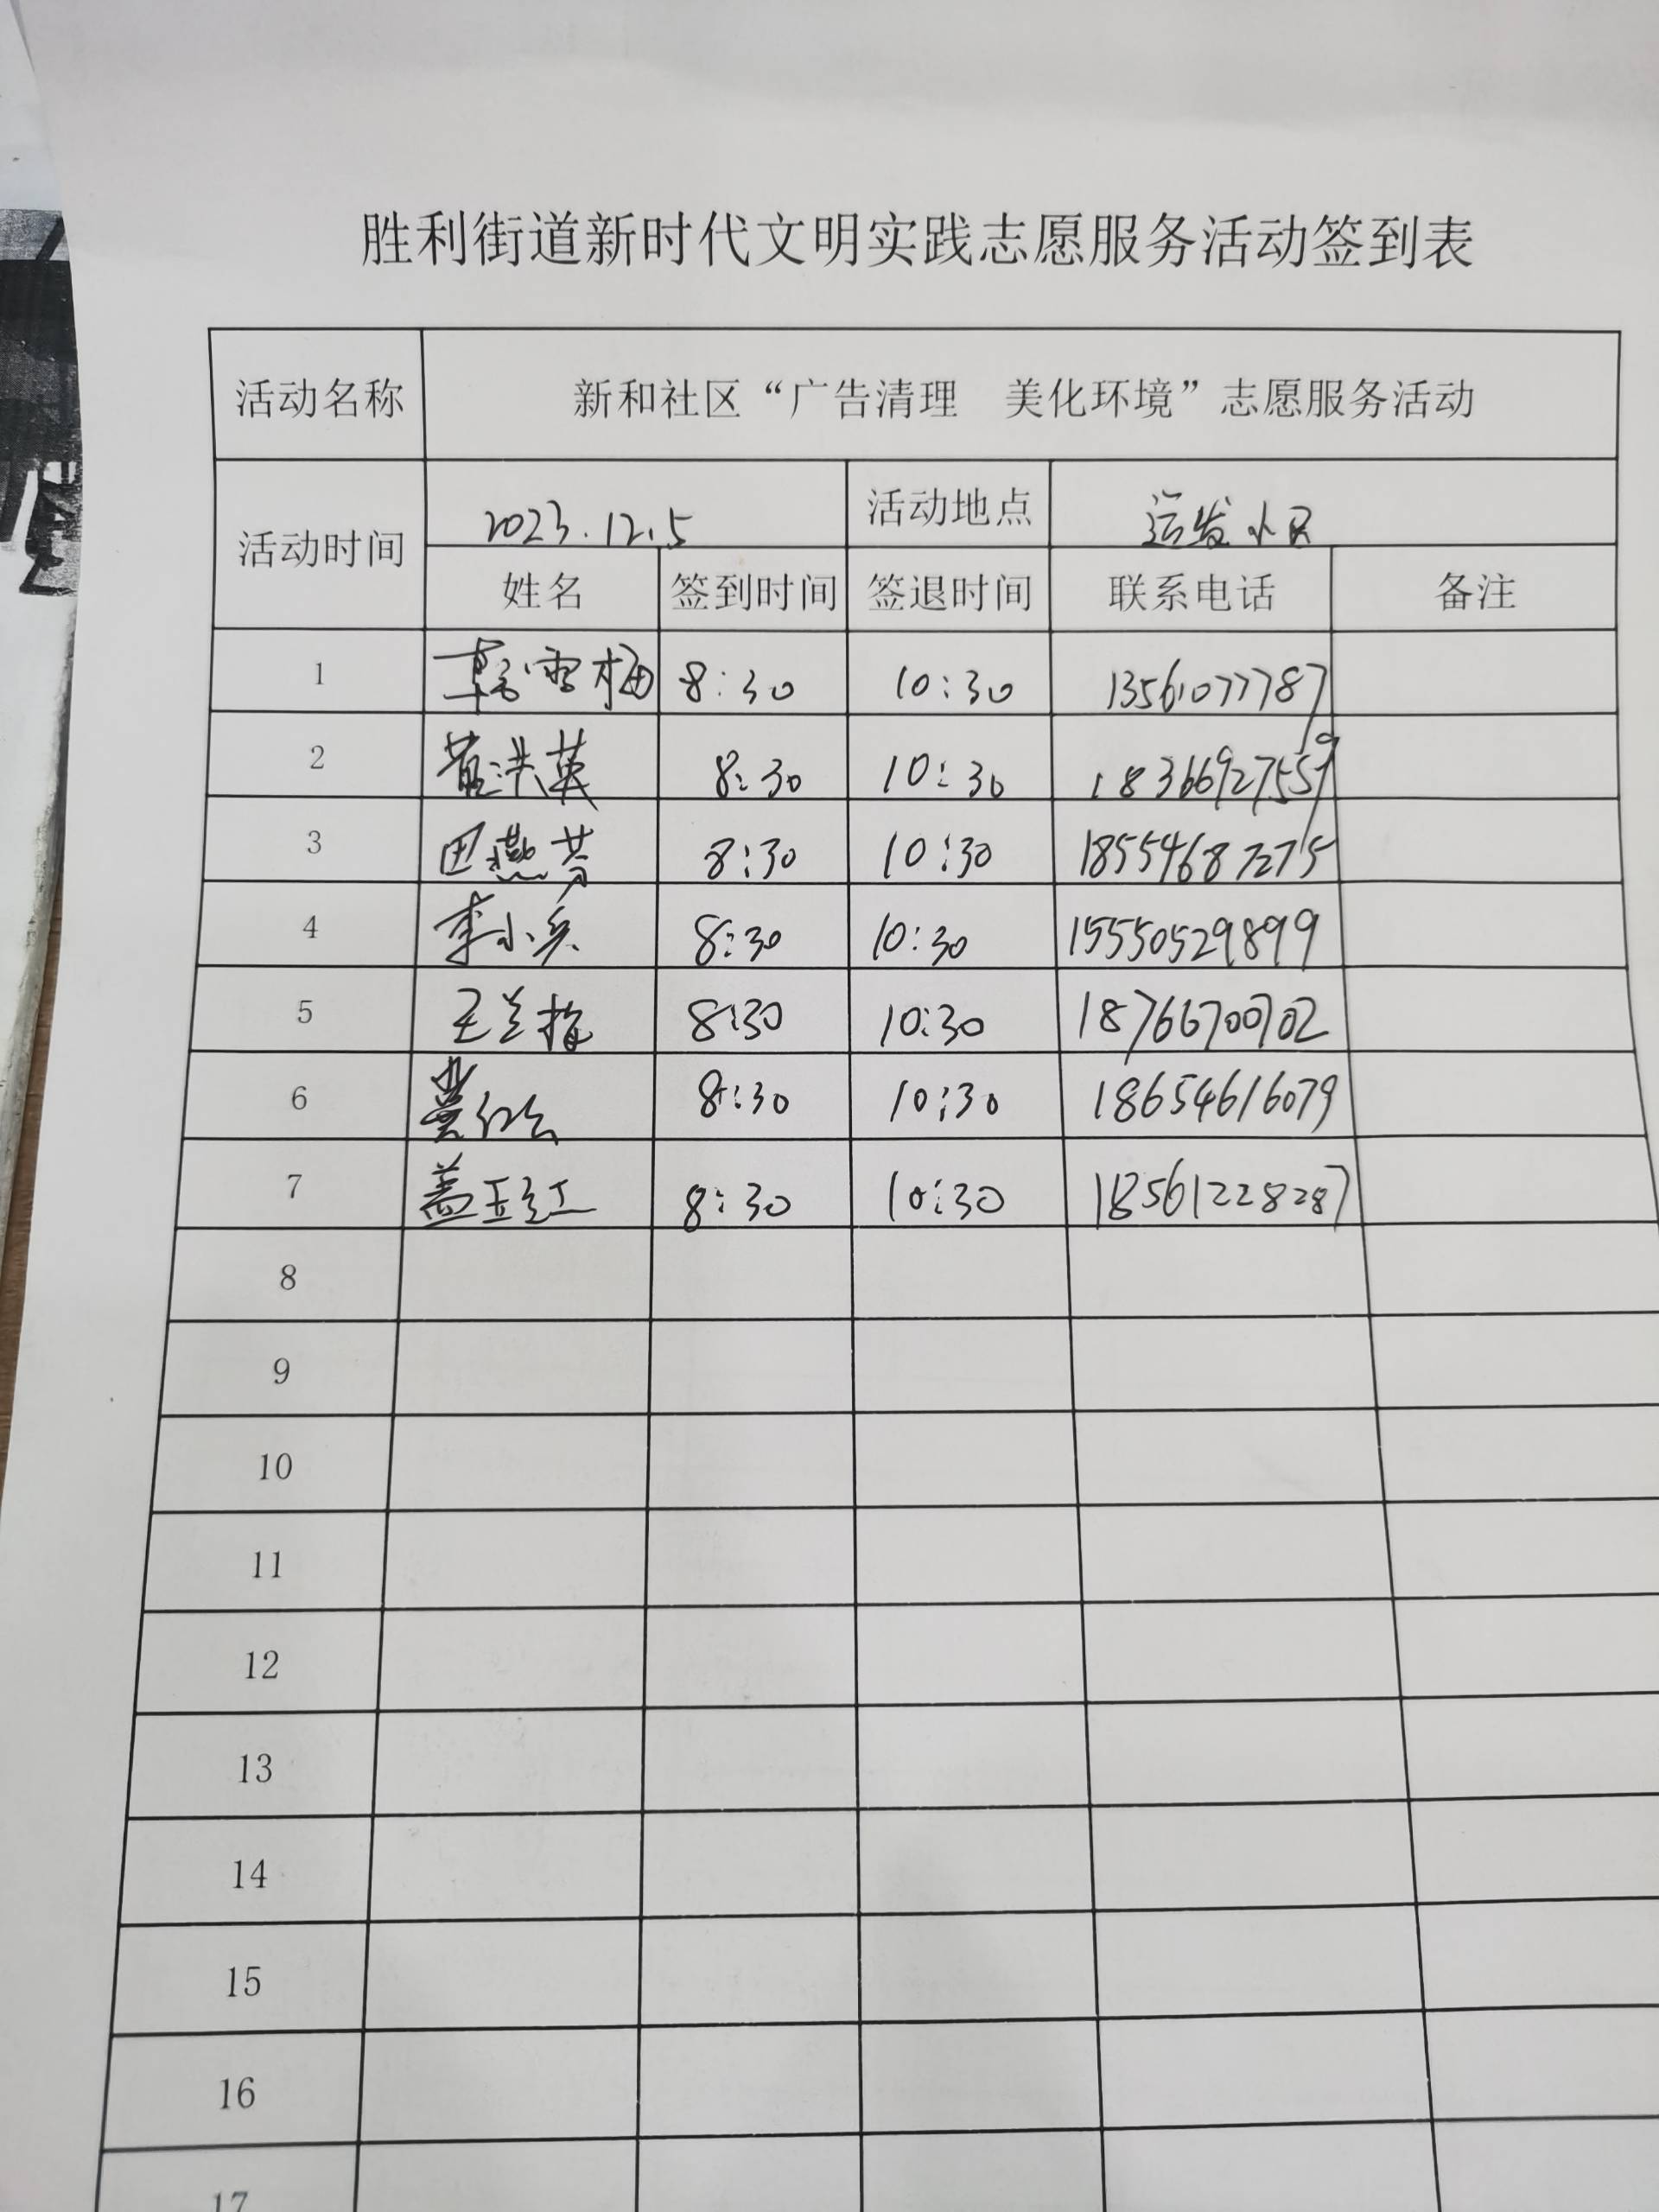 胜利街道新时代文明实践志愿服务活动签到表
活动名称 新和社区“广告清理 美化环境”志愿服务活动
活动时间 2023.12.5 活动地点 运发小区
姓名 签到时间 签退时间 联系电话 备注
1 韩雪梅 8:30 10:30 13561077787
2 董洪英 8:30 10:30 18366927559
3 田燕芳 8:30 10:30 18554687275
4 李小兵 8:30 10:30 15550529899
5 王兰梅 8:30 10:30 18766700702
6 8:30 10:30 18654616079
7 盖玉红 8:30 10:30 18561228287
8
9
10
11
12
13
14
15
16
17